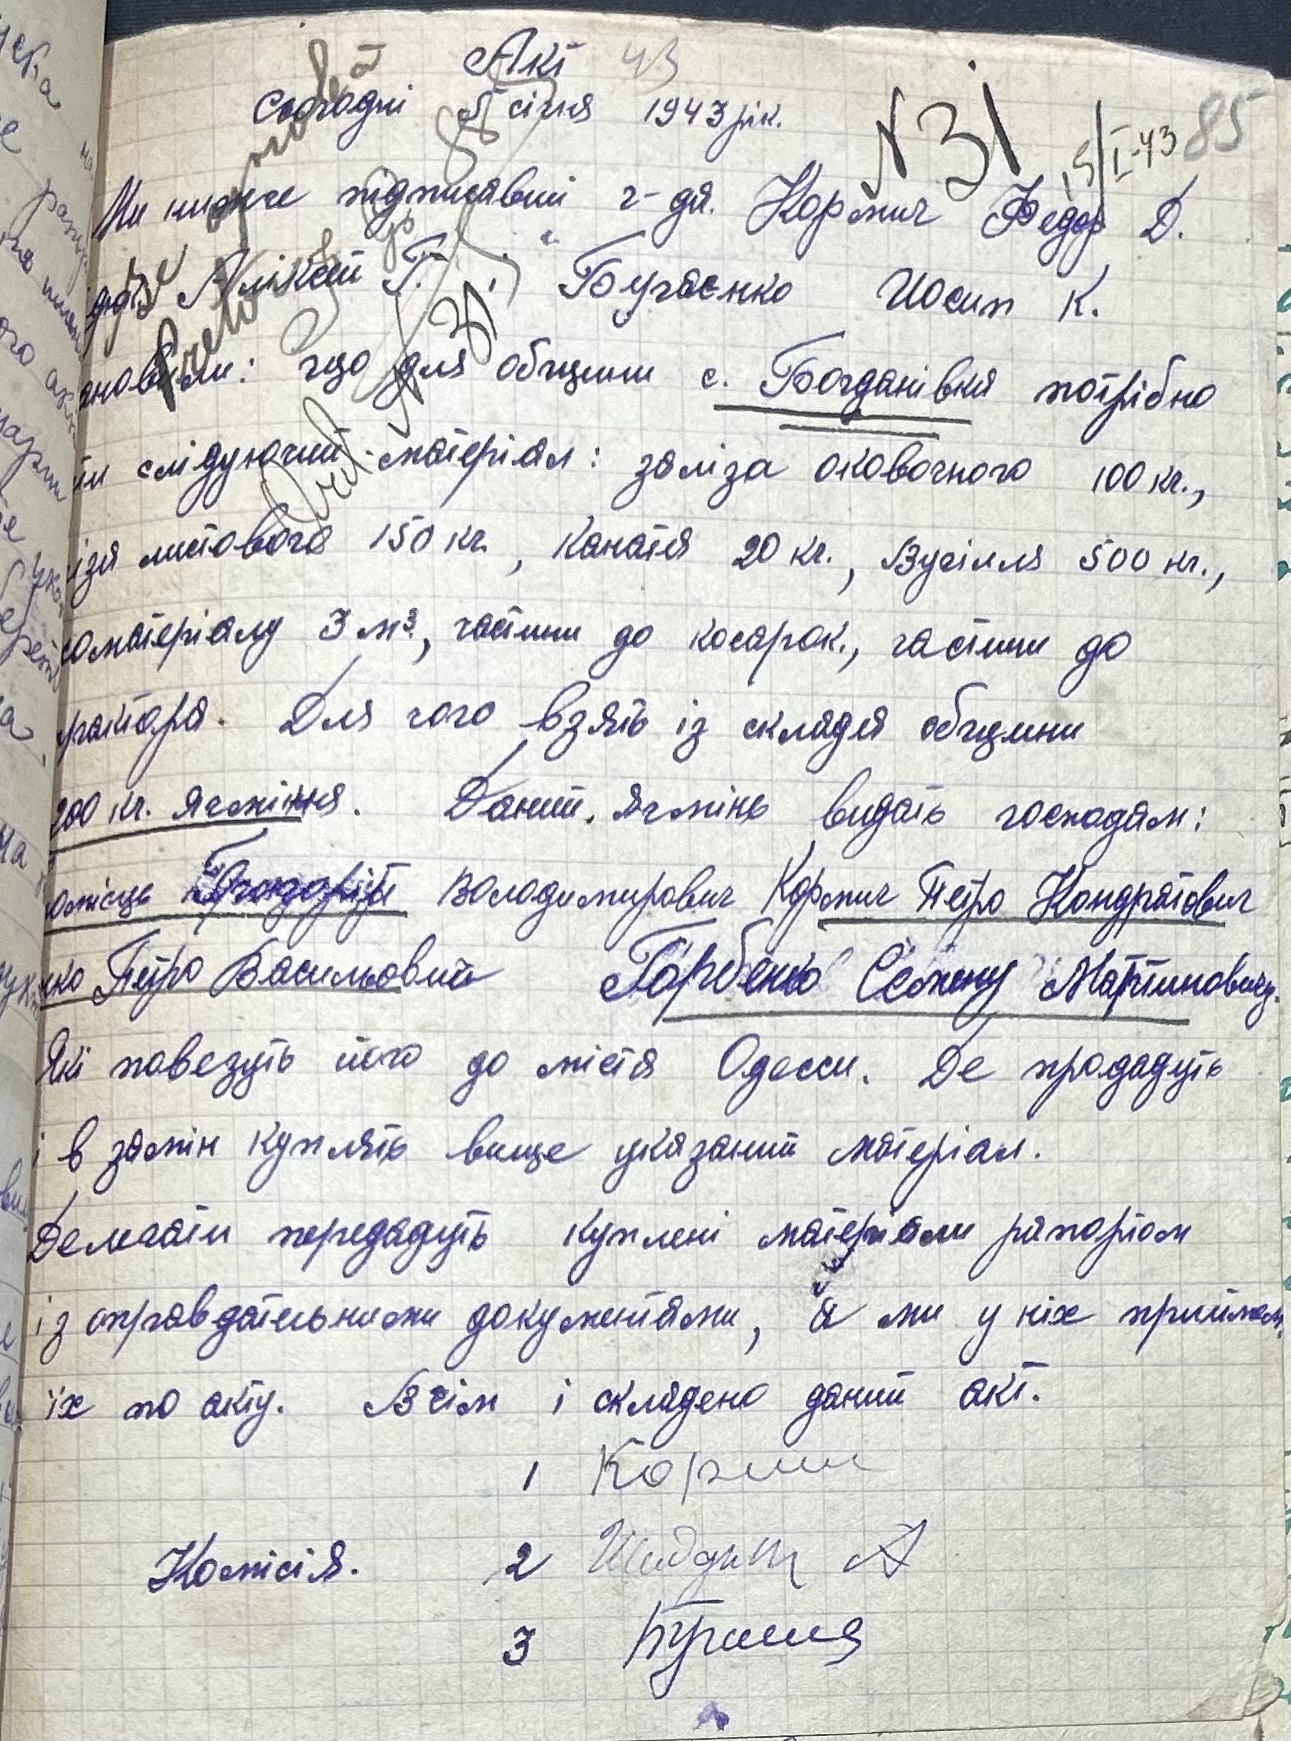 Акт 43
Сьогодні 5 січня 1943 рік.
N 31
15/I-43 85
Ми нижче підписавші г-да. Кормич Федор Д.
Аліксей Г. Бугаєнко Иосип К.
ановили: що для общини с. Богданівка потрібно
ти слідуючий матеріал: заліза оковочного 100 кг.,
ліза листового 150 кг., Каната 20 кг., Вугілля 500 кг.,
соматеріалу 3 м³, частини до косарок., частини до
рактора. Для чого взять із склада общини
200 кг. ячміння. Даний. ячмінь видать господам:
Володимирович Кормич Петро Кондратович
нко Петро Васильовий Горбенко Семену Мартиновичу.
Які повезуть його до міста Одесси. Де продадуть
і в замін куплять вище указаний матеріал.
Делегати передадуть куплені матеріали рапортом
із оправдательними документами, а ми у ніх приймем
їх по акту. В чім і складено даний акт.
1 Кормич
Комісія. 2
3
N 31